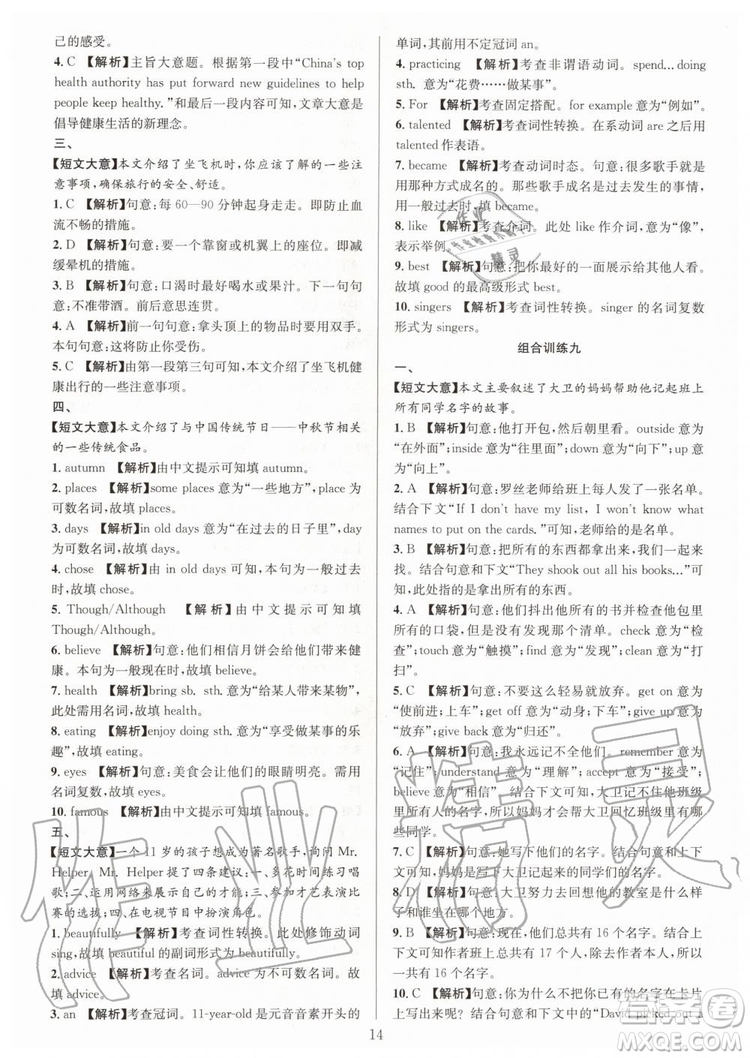 己的感受。
4. C 【解析】主旨大意题。根据第一段中“China's top
health authority has put forward new guidelines to help
people keep healthy.”和最后一段可知，文章大意是
倡导健康生活的新理念。
三、
【短文大意】本文介绍了坐飞机时，你应该了解的一些注
意事项，确保旅行的安全、舒适。
1. C 【解析】句意：每 60—90 分钟起身走走。以防止血
流不畅的措施。
2. D 【解析】句意：要一个靠窗或机翼上的座位。即减
缓晕机的措施。
3. B 【解析】句意：口渴时最好喝水或果汁。下一句句
意：不准带酒。前后意思连贯。
4. A 【解析】前一句句意：拿头顶上的物品时要用双手。
本句句意：以防止你受伤。
5. C 【解析】由第一段第三句可知，本文介绍了坐飞机健
康出行的一些注意事项。
四、
【短文大意】本文介绍了与中国传统节日——中秋节相关
的一些传统食品。
1. autumn 【解析】由中文提示可知填 autumn。
2. places 【解析】some places 意为“一些地方”，place 为
可数名词，故填 places。
3. days 【解析】in old days 意为“在过去的日子里”，day
为可数名词，故填 days。
4. chose 【解析】由 in old days 可知，本句为一般过去
时，故填 chose。
5. Though/Although 【解析】由中文提示可知填
Though/Although。
6. believe 【解析】句意：他们相信月饼会给他们带来健
康。本句为一般现在时，故填 believe。
7. health 【解析】bring sb. sth. 意为“给某人带来某物”，
此处需用名词，故填 health。
8. eating 【解析】enjoy doing sth. 意为“享受做某事的乐
趣”，故填 eating。
9. eyes 【解析】句意：美食会让他们的眼睛明亮。需用
名词复数，故填 eyes。
10. famous 【解析】由中文提示可知填 famous。
五、
【短文大意】一个 11 岁的孩子想成为著名歌手，询问 Mr.
Helper，Mr. Helper 提了四条建议：一、利用网络练习唱
歌；二、在公共场合唱歌；三、参加才艺表演比
赛的选拔；四、在电视节目中扮演角色。
1. beautifully 【解析】考查词性转换。此处修饰动词
sing，故填 beautiful 的副词形式 beautifully。
2. advice 【解析】考查名词。advice 为不可数名词，故
填 advice。
3. an 【解析】考查冠词。11-year-old 是元音音素开头的
单词，其前用不定冠词 an。
4. practicing 【解析】考查非谓语动词。spend...doing
sth. 意为“花费……做某事”。
5. For 【解析】考查固定搭配。for example 意为“例如”。
6. talented 【解析】考查词性转换。在系动词 are 之后，
talented 作表语。
7. became 【解析】考查动词时态。句意：很多歌手就是
用那种方式成名的。那些歌手成名是过去发生的事情，
用一般过去时，故填 became。
8. like 【解析】考查介词。此处 like 作介词，意为“像”，
表示举例。
9. best 【解析】句意：将你最好的一面展示给其他人看。
故填 good 的最高级形式 best。
10. singers 【解析】考查词性转换。singer 的名词复数
形式为 singers。
组合训练九
一、
【短文大意】本文主要叙述了大卫的妈妈帮助他记起班上
所有同学名字的故事。
1. B 【解析】句意：他打开包，然后朝里看。outside 意为
“在外面”；inside 意为“往里面”；down 意为“向下”；up 意
为“向上”。
2. A 【解析】句意：罗丝老师给班上每人发了一张名单。
结合下文“If I don't have my list, I won't know what
names to put on the cards.”可知，老师给的是名单。
3. B 【解析】句意：把所有的东西都拿出来，我们再找一
遍。结合此句和下文“They shook out all his books...”可
知，此处指的是拿出所有的东西。
4. A 【解析】句意：他们抖出他所有的书并检查他所有
的口袋，但是没有发现那个清单。check 意为“检
查”；touch 意为“触摸”；find 意为“发现”；shout 意为“打
扫”。
5. C 【解析】句意：不要这么轻易就放弃。get on 意为
“使前进；上车”；get off 意为“动身；下车”；give up 意为
“放弃”；give back 意为“归还”。
6. A 【解析】句意：我永远记不住他们。remember 意为
“记住”；understand 意为“理解”；accept 意为“接受”；
believe 意为“相信”。
7. C 【解析】句意：她写下他们的名字。结合句意和上下
文可知，妈妈写下大卫记起来的名字。
8. D 【解析】句意：大卫努力去回想他的教室是什么样
子的。
9. B 【解析】句意：现在他们总共有 16 个名字。由下文
可知，他们总共有 17 个人，除去作者本人，所以他们总
共有 16 个名字。
10. C 【解析】句意：你为什么不将你的名字在卡片
上写出来呢？结合句意和下文中的“David picked out a
14